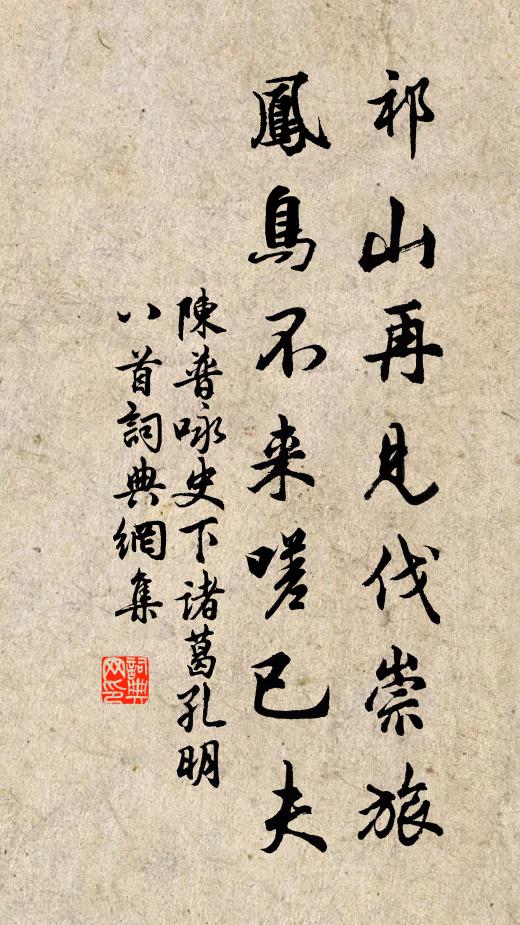 祁山再見伐崇旅
鳳鳥不来嗟已夫
陳普咏史下诸葛孔明
八首詞典網集
詞典网印